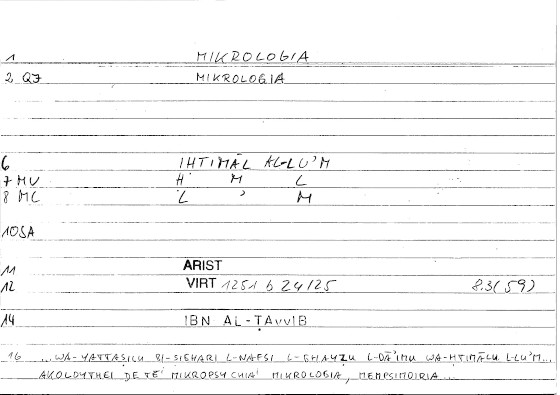 1 MIKROLOGIA
2 QJ MIKROLOGIA
6 IHTIMĀL AL-LU'M
7 MU H M L
8 ML L ' M
10SA
11 ARIST
12 VIRT 1251 b 24/25 8.3(59)
14 IBN AL-ṬAYYIB
16 ...WA-YATTASILU BI-SIGHARI L-NAFSI L-GHAYẒU L-DĀ'IMU WA-HTIMĀLU L-LU'M...
AKOLOYTHEI DE TĒ' MIKROPSYCHIAI MIKROLOGIA, MEMPSIMOIRIA...